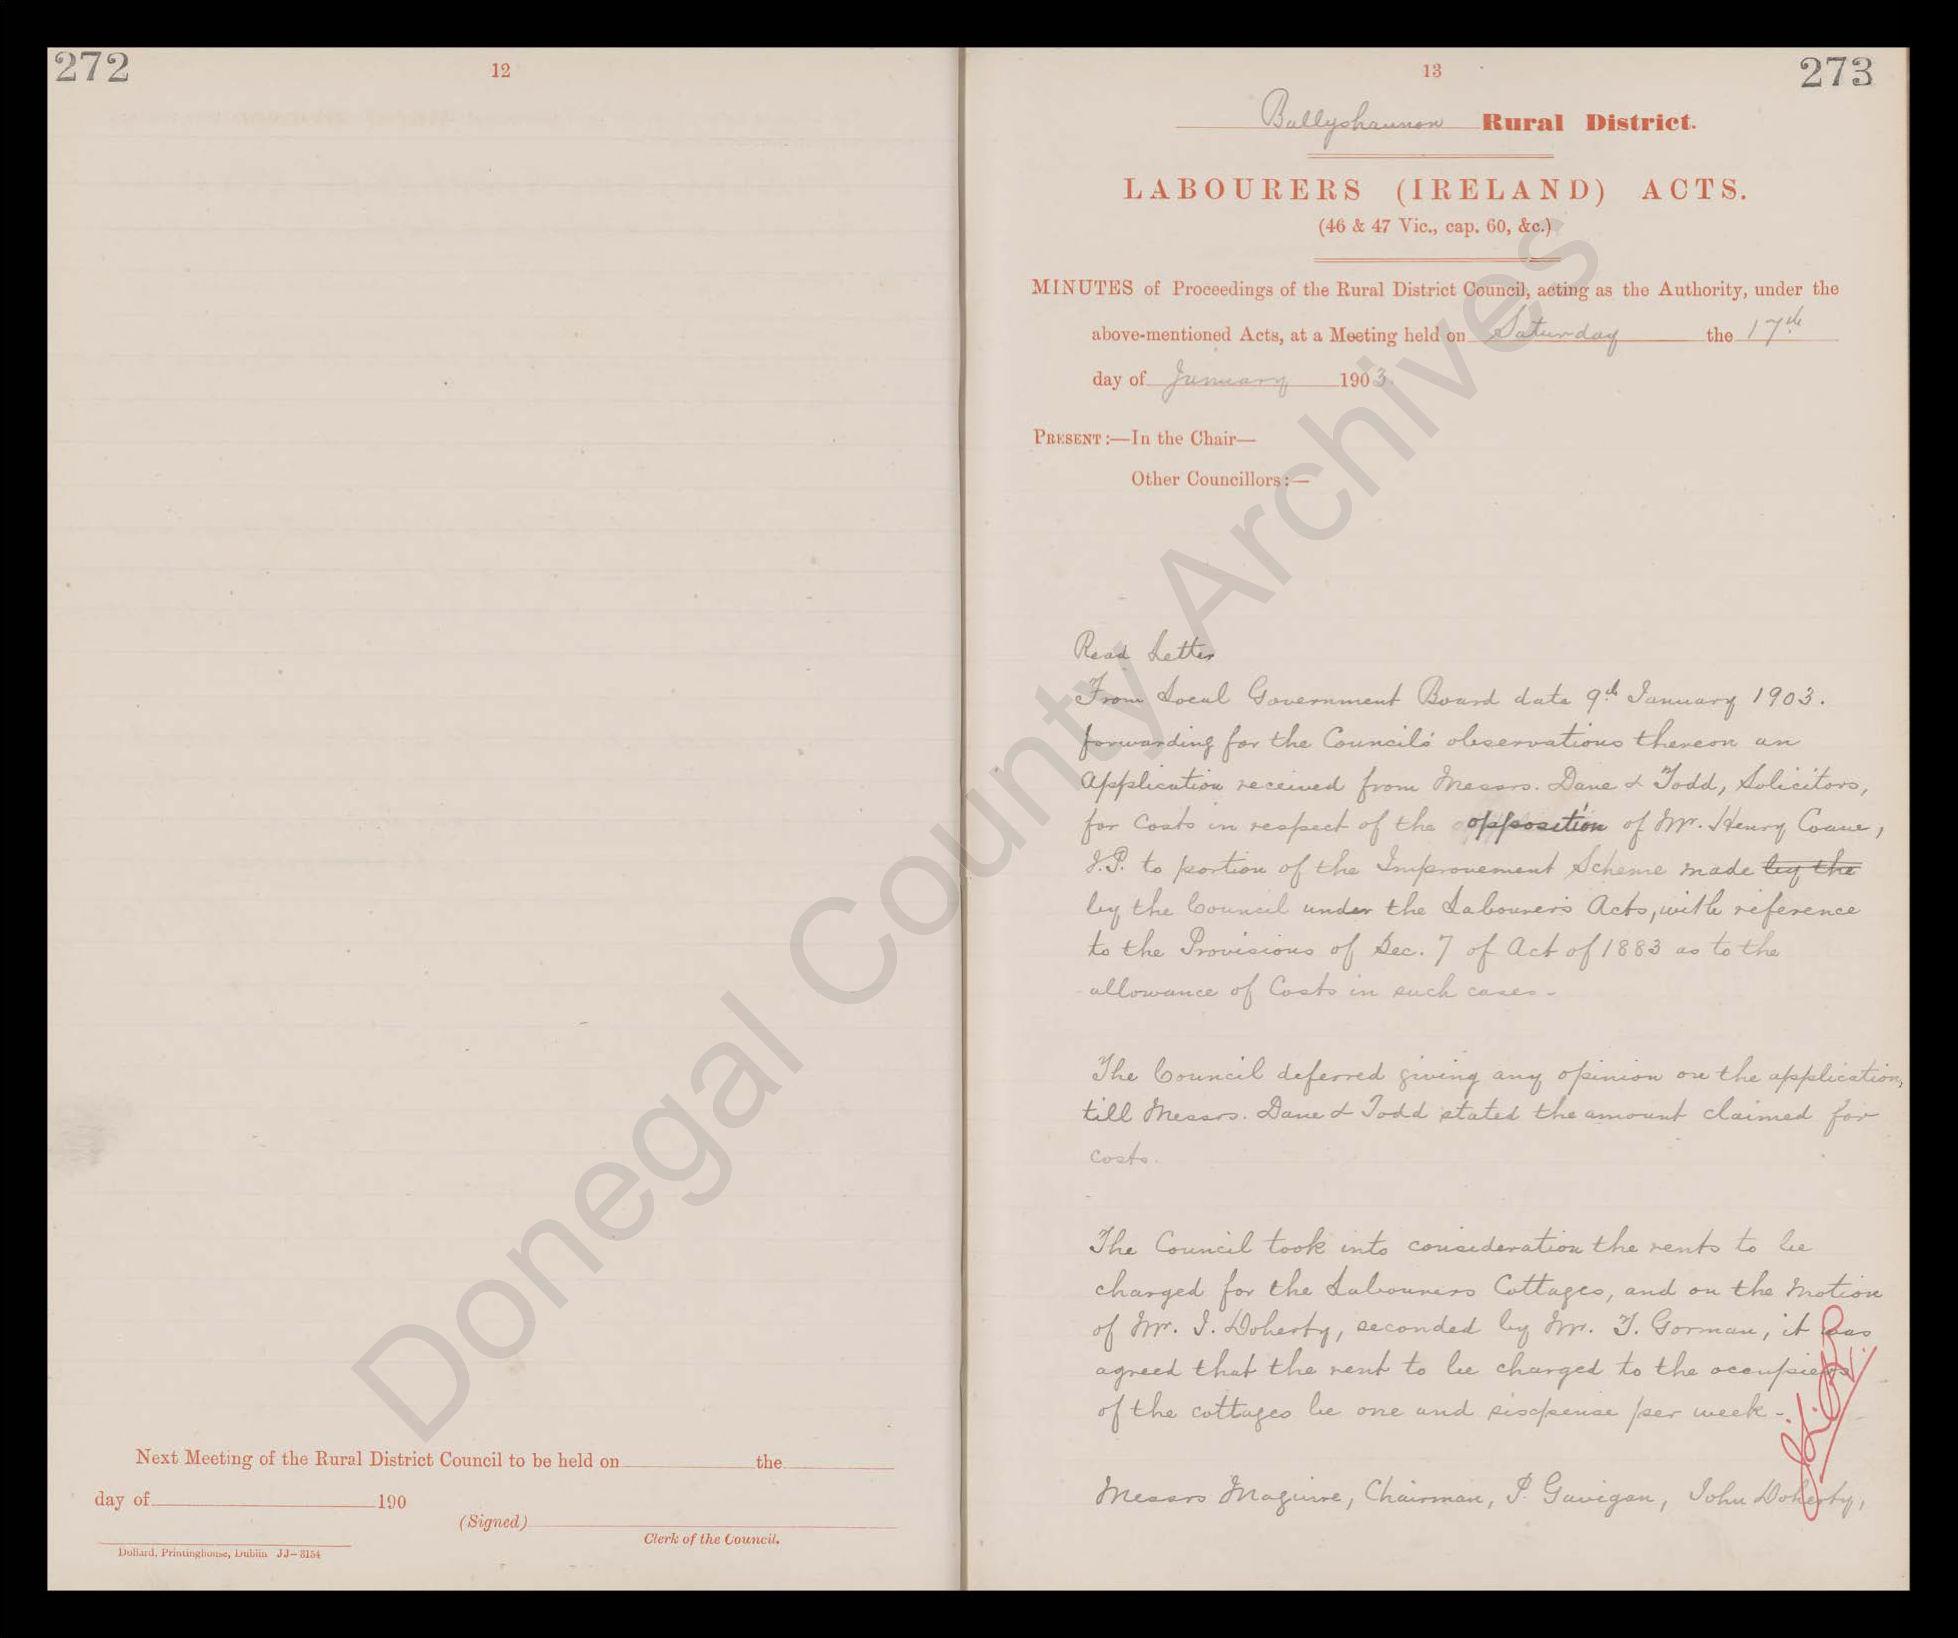 272
12
Next Meeting of the Rural District Council to be held on the
day of 190
(Signed)
Clerk of the Council.
Dollard, Printinghouse, Dublin JJ—3154
13
273
Ballyshannon Rural District.
LABOURERS (IRELAND) ACTS.
(46 & 47 Vic., cap. 60, &c.)
MINUTES of Proceedings of the Rural District Council, acting as the Authority, under the
above-mentioned Acts, at a Meeting held on Saturday the 17th
day of January 1903.
PRESENT:—In the Chair—
Other Councillors:—
Read Letter
From Local Government Board date 9th January 1903.
forwarding for the Council's observations thereon an
Application received from Messrs. Dane & Todd, Solicitors,
for Costs in respect of the opposition of Mr. Henry Coane,
J.P. to portion of the Improvement Scheme made by the
by the Council under the Labourers Acts, with reference
to the Provisions of Sec. 7 of Act of 1883 as to the
allowance of Costs in such cases -
The Council deferred giving any opinion on the application,
till Messrs. Dane & Todd stated the amount claimed for
costs.
The Council took into consideration the rents to be
charged for the Labourers Cottages, and on the motion
of Mr. J. Doherty, seconded by Mr. T. Gorman, it was
agreed that the rent to be charged to the occupiers
of the cottages be one and sixpense per week -
Messrs Maguire, Chairman, P. Gavigan, John Doherty,
Donegal County Archives